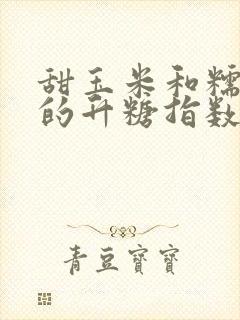 甜玉米和糯
的升糖指数
青豆寶寶